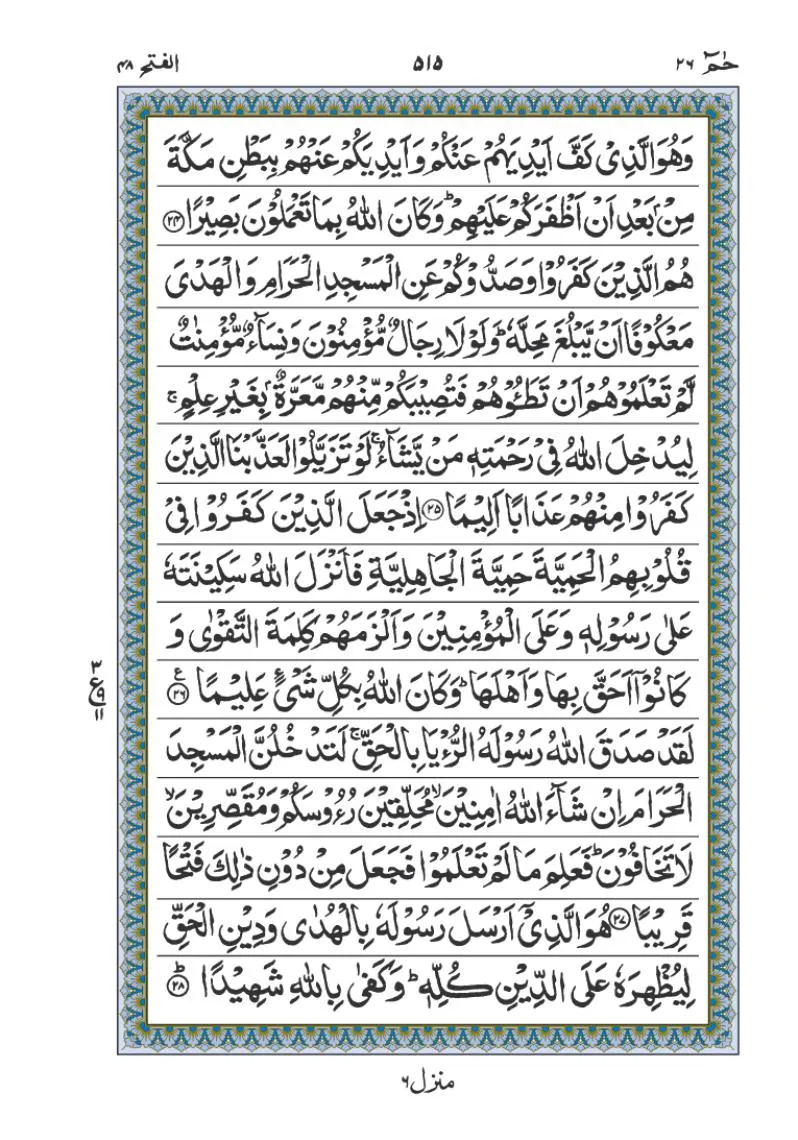 حٰمٓ ۲۶ ۵۱۵ الفتح ۴۸
وَهُوَ الَّذِىْ كَفَّ اَيْدِيَهُمْ عَنْكُمْ وَ اَيْدِيَكُمْ عَنْهُمْ بِبَطْنِ مَكَّةَ
مِنْۢ بَعْدِ اَنْ اَظْفَرَكُمْ عَلَيْهِمْ ؕ وَكَانَ اللّٰهُ بِمَا تَعْمَلُوْنَ بَصِيْرًا ﴿۲۴﴾
هُمُ الَّذِيْنَ كَفَرُوْا وَصَدُّوْكُمْ عَنِ الْمَسْجِدِ الْحَرَامِ وَالْهَدْىَ
مَعْكُوْفًا اَنْ يَّبْلُغَ مَحِلَّهٗ ؕ وَلَوْلَا رِجَالٌ مُّؤْمِنُوْنَ وَنِسَآءٌ مُّؤْمِنٰتٌ
لَّمْ تَعْلَمُوْهُمْ اَنْ تَطَـُٔوْهُمْ فَتُصِيْبَكُمْ مِّنْهُمْ مَّعَرَّةٌۢ بِغَيْرِ عِلْمٍ ۚ
لِيُدْخِلَ اللّٰهُ فِىْ رَحْمَتِهٖ مَنْ يَّشَآءُ ۚ لَوْ تَزَيَّلُوْا لَعَذَّبْنَا الَّذِيْنَ
كَفَرُوْا مِنْهُمْ عَذَابًا اَلِيْمًا ﴿۲۵﴾ اِذْ جَعَلَ الَّذِيْنَ كَفَرُوْا فِىْ
قُلُوْبِهِمُ الْحَمِيَّةَ حَمِيَّةَ الْجَاهِلِيَّةِ فَاَنْزَلَ اللّٰهُ سَكِيْنَتَهٗ
عَلٰى رَسُوْلِهٖ وَعَلَى الْمُؤْمِنِيْنَ وَاَلْزَمَهُمْ كَلِمَةَ التَّقْوٰى وَ
كَانُوْۤا اَحَقَّ بِهَا وَاَهْلَهَا ؕ وَكَانَ اللّٰهُ بِكُلِّ شَىْءٍ عَلِيْمًا ﴿۲۶﴾ ع
۳
ع ۹
۱۱
لَقَدْ صَدَقَ اللّٰهُ رَسُوْلَهُ الرُّءْيَا بِالْحَقِّ ۚ لَتَدْخُلُنَّ الْمَسْجِدَ
الْحَرَامَ اِنْ شَآءَ اللّٰهُ اٰمِنِيْنَ ۙ مُحَلِّقِيْنَ رُءُوْسَكُمْ وَمُقَصِّرِيْنَ ۙ
لَا تَخَافُوْنَ ؕ فَعَلِمَ مَا لَمْ تَعْلَمُوْا فَجَعَلَ مِنْ دُوْنِ ذٰلِكَ فَتْحًا
قَرِيْبًا ﴿۲۷﴾ هُوَ الَّذِىْۤ اَرْسَلَ رَسُوْلَهٗ بِالْهُدٰى وَدِيْنِ الْحَقِّ
لِيُظْهِرَهٗ عَلَى الدِّيْنِ كُلِّهٖ ؕ وَكَفٰى بِاللّٰهِ شَهِيْدًا ؕ﴿۲۸﴾
منزل ۶